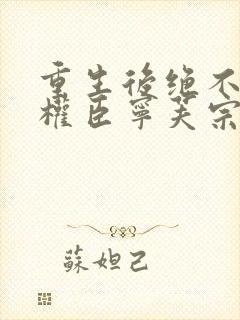 重生後绝不
權臣寧芙宗
蘇妲己